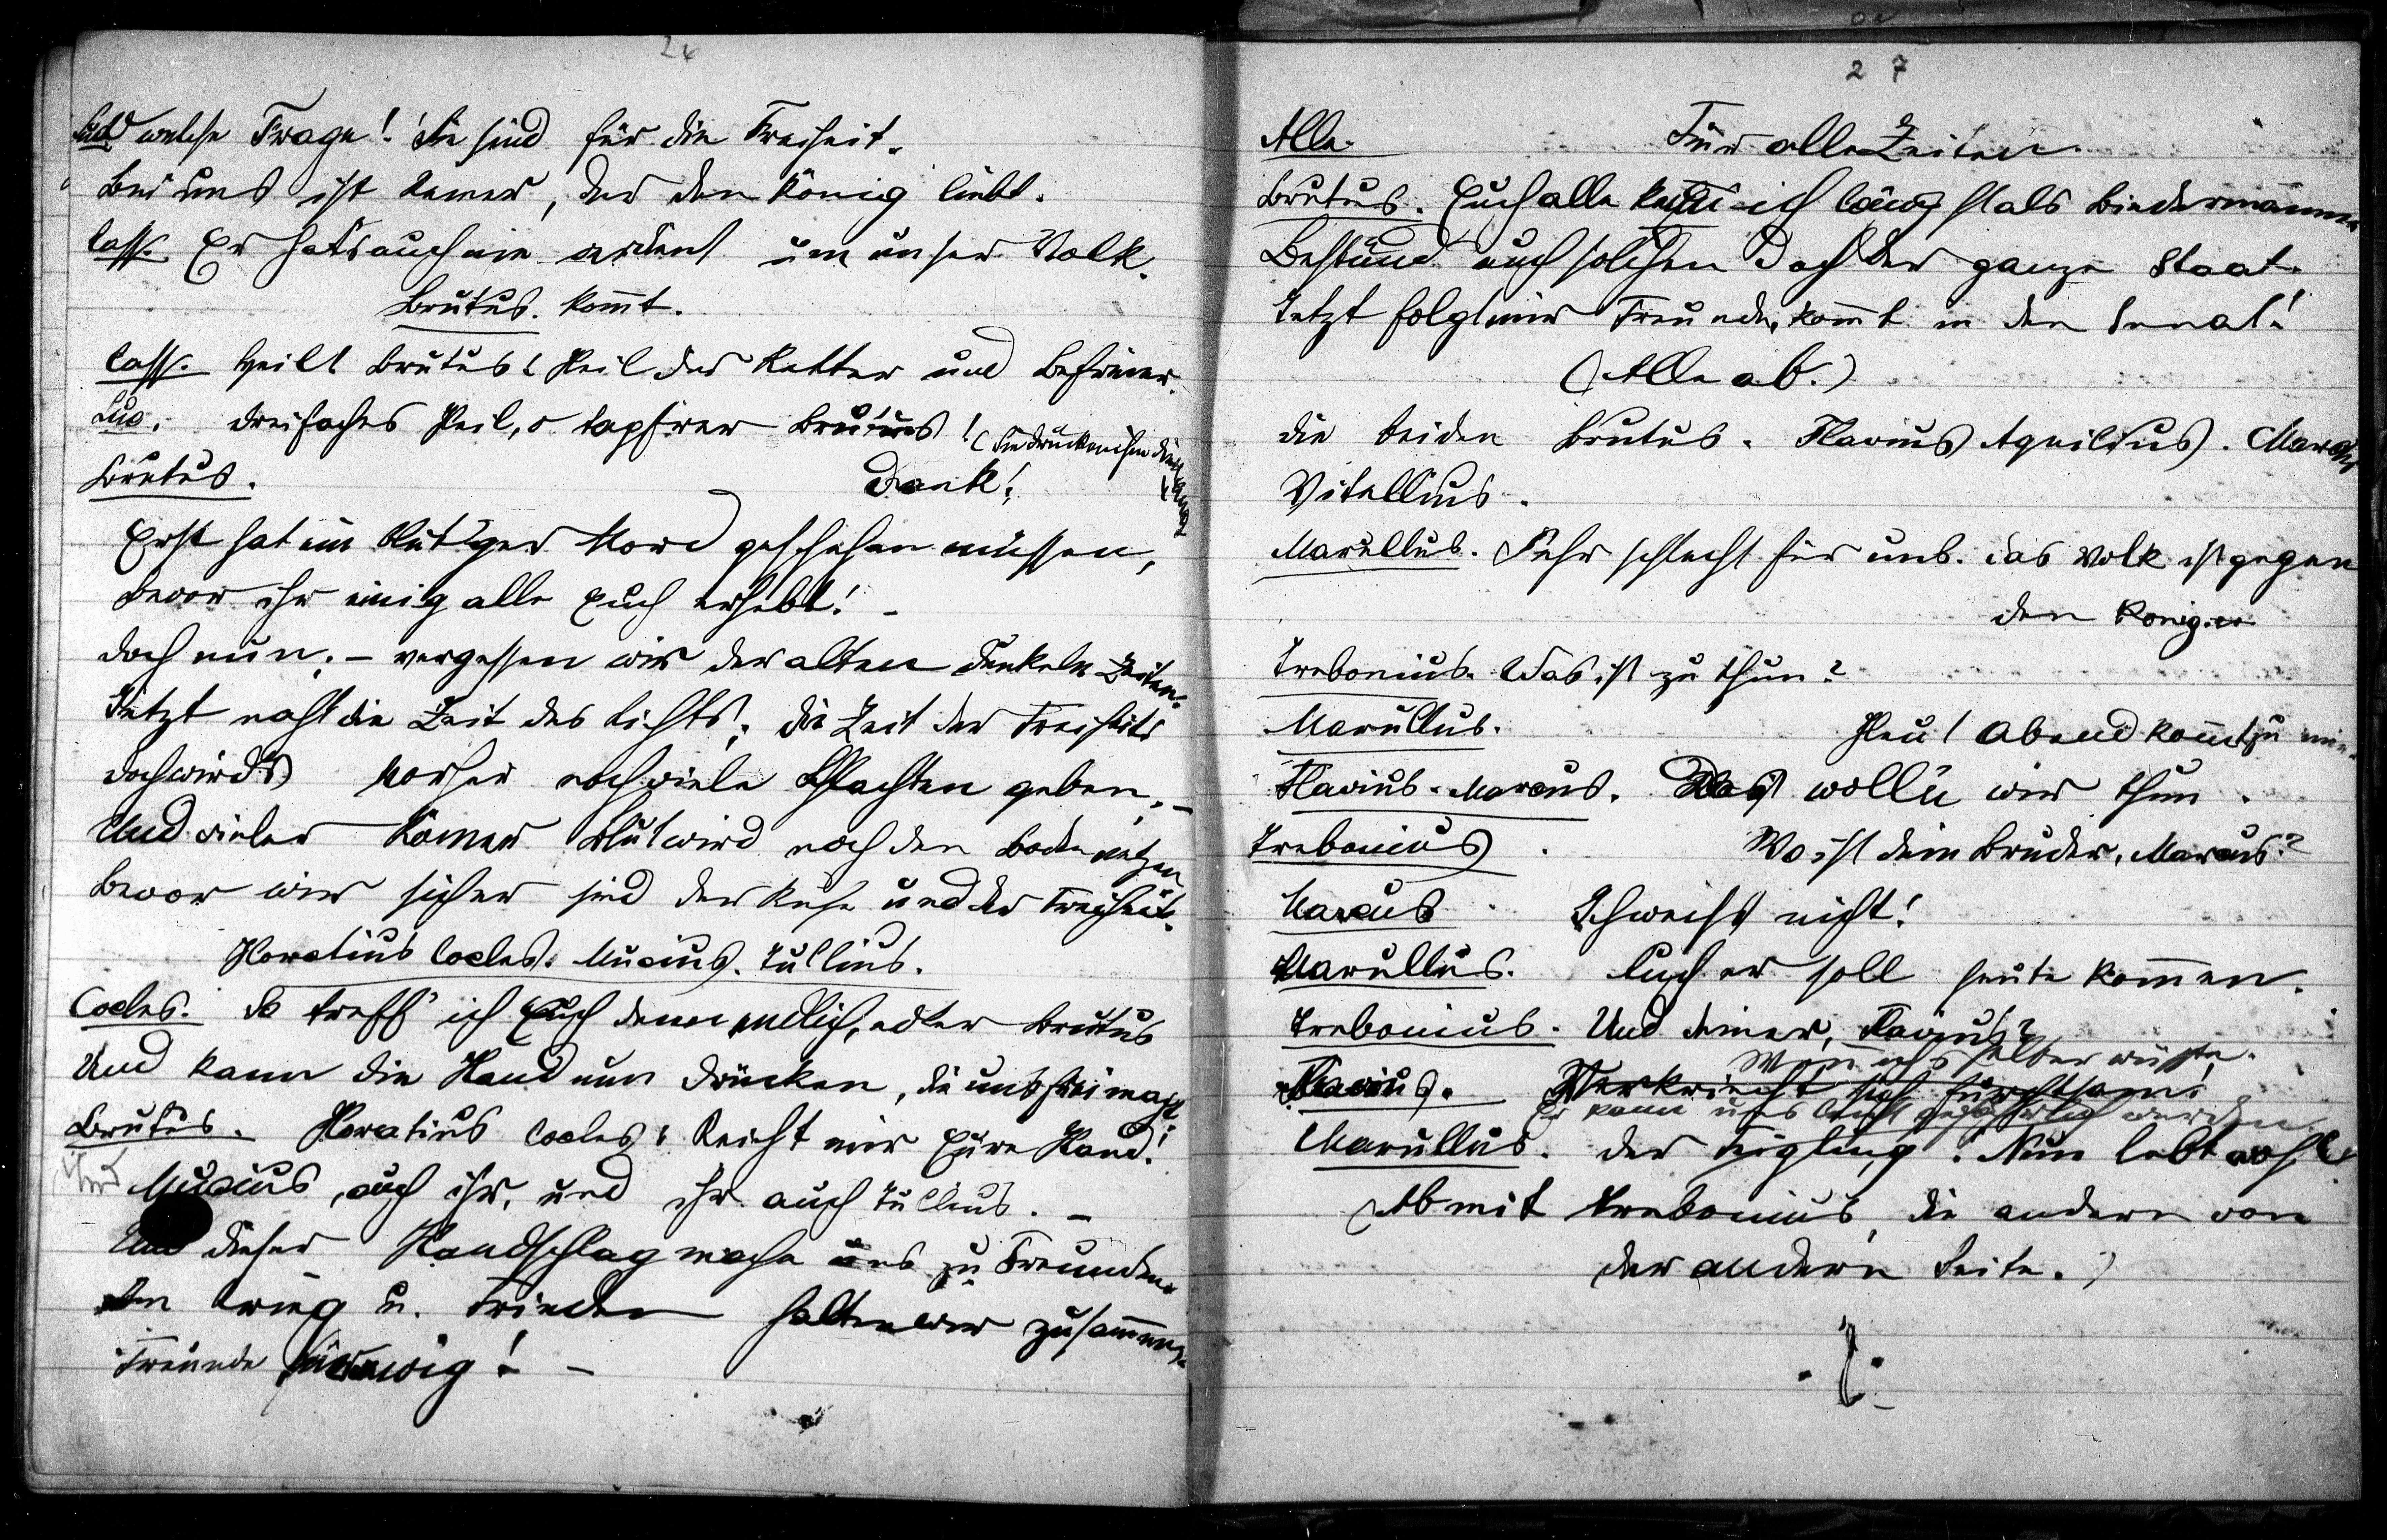 24
welche Frage! Sie sind für die Freiheit.
Bei uns ist keiner, der den König liebt.
Cass. Er hat's auch nie um unser Volk.
Brutus. kom̅t.
Cass. Heil! Brutus! Heil der Retter und Befreier.
Luc. Dreifaches Heil, o tapfrer Brutus! (Sie drücken ihm die Hand
Brutus. Dank!
Erst hat ein blut'ger Mord geschehen müssen,
Bevor ihr einig alle Euch erhebt! –
Doch nun; – vergessen wir der alten dunkeln Zeiten.
Jetzt naht die Zeit des Lichts; die Zeit der Freiheit;
Doch wird's vorher noch viele Schlachten geben; –
Und vieler Römer Blut wird noch den Boden netzen
Bevor wir sicher sind der Ruhe und der Freiheit.
Horatius Cocles. Mucius. Tullius.
Cocles. So treff' ich Euch denn endlich, edler Brutus
Und kann die Hand nun drücken, die uns frei macht!
Brutus. Horatius Cocles! Reicht mir Eure Hand!
Und
Mucius, auch ihr, und ihr auch Tullius. –
Und dieser Handschlag mache uns zu Freunden
In Krieg u. Frieden halten wir zusam̅en.
Freunde für ewig! –
27
Alle. Für alle Zeiten.
Brutus. Euch alle kenn' ich längst als Biedermänner
Bestünd' auch solchen doch der ganze Staat.
Jetzt folgt mir Freunde, kom̅t in den Senat!
(Alle ab.)
Die beiden Brutus. Flavius Aquilius. Marcus
Vitellius.
Marullus. Sehr schlecht für uns. Das Volk ist gegen
den König.
Trebonius. Was ist zu thun?
Marullus. Heut Abend kom̅t zu mir.
Flavius. Marcus. Das wollen wir thun.
Trebonius. Wo ist dein Bruder, Marcus?
Marcus. Ich weiß nicht!
Marullus. Auch er soll heute kom̅en.
Trebonius. Und deiner, Flavius?
Wenn ich's selber wüßte.
Flavius. Verkriecht sich furchtsam;
Er kann uns leicht gefährlich werden
Marullus. Der Feigling! Nun lebt wohl
(Ab mit Trebonius, die andern von
der andern Seite.)